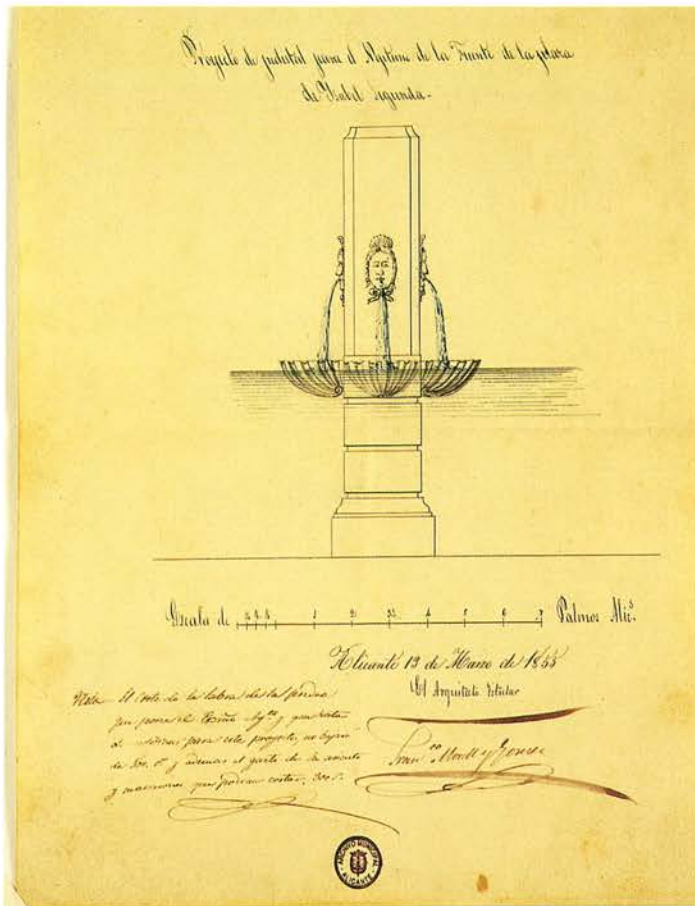 Proyecto de pedestal para el Neptuno de la Fuente de la plaza
de Isabel Segunda.
Escala de 1 2 3 4 5 6 7 Palmos
Alicante 13 de Marzo de 1855
El Arquitecto Titular
Nota El coste de la labra de la piedra
que posee el y que trata
de para este proyecto, no
de 500 y ademas el gasto de su asiento
y que podran costar, 300
ARCHIVO MUNICIPAL
ALICANTE